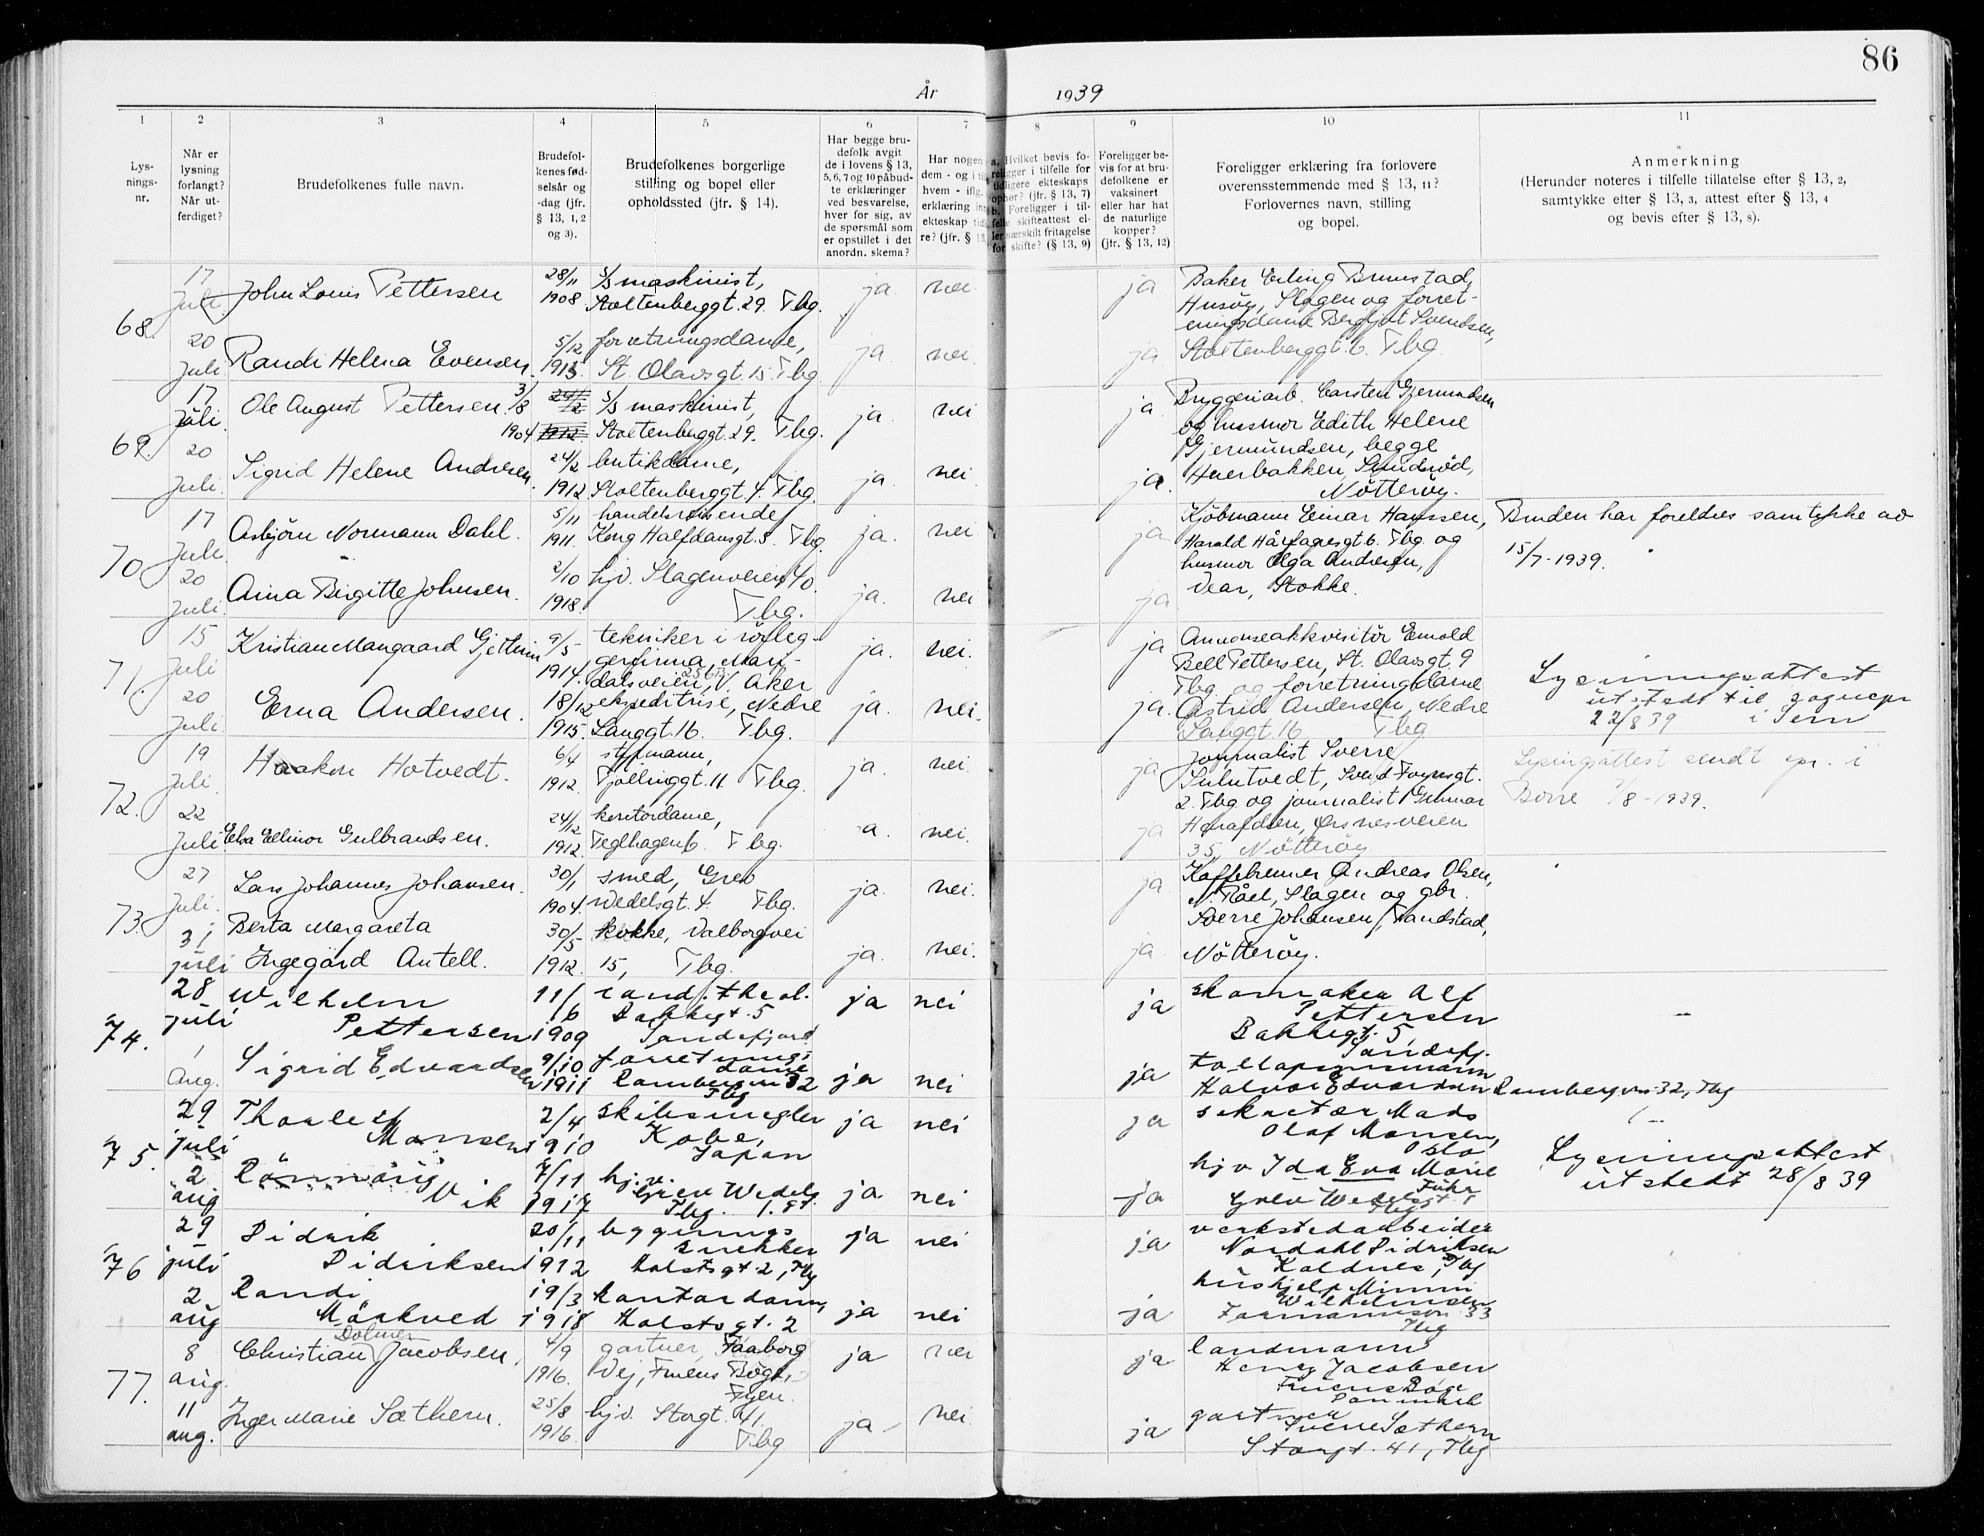 86
År 1939
1 2 3 4 5 6 7 8 9 10 11
Lys-
nings-
nr.
Når er
lysning
forlangt?
Når ut-
ferdiget?
Brudefolkenes fulle navn.
Brudefol-
kenes fød-
selsår og
-dag (jfr.
§ 13, 1, 2
og 3).
Brudefolkenes borgerlige
stilling og bopel eller
opholdssted (jfr. § 14).
Har begge bru-
defolk avgit
de i lovens § 13,
5, 6, 7 og 10 påbud-
te erklæringer
ved besvarelse,
hver for sig, av
de spørsmål som
er opstillet i det
anordn. skema?
Har nogen
dem - og i
hvem - ifl.
erklæring in
ekteskap tid
re? (jfr. § 13,
a. Hvilket bevis fo-
religger i tilfelle for
tidligere ekteskaps
ophør? (jfr. § 13, 7)
b. Foreligger i til-
felle skifteattest el-
ler særskilt fritagelse
for skifte? (§ 13, 9)
Foreligger be-
vis for at bru-
defolkene er
vaksinert
eller har hat
de naturlige
kopper?
(jfr. § 13, 12)
Foreligger erklæring fra forlovere
overensstemmende med § 13, 11?
Forlovernes navn, stilling
og bopel.
Anmerkning
(Herunder noteres i tilfelle tillatelse efter § 13, 2,
samtykke efter § 13, 3, attest efter § 13, 4
og bevis efter § 13, 8).
68.
17 Juli John Louis Pettersen 28/11 1908 maskinist,
Stoltenberggt. 29. Tbg. ja. nei. ja
Baker Erling Brunstad,
Husøy, Slagen og forret-
ningsdame Bergljot Svendsen,
Stoltenberggt. 6. Tbg.
20 Juli Randi Helena Evensen 5/12 1913 forretningsdame,
St. Olavsgt. 15. Tbg. ja. nei. ja
69.
17 Juli Ole August Pettersen 3/8 1904 maskinist,
Stoltenberggt. 29. Tbg. ja nei ja
Bryggeriarb. Carsten Gjermundsen
og husmor Edith Helene
Gjermundsen, begge
Smidsrød,
Nötteröy.
20 Juli Sigrid Helene Andresen 24/2 1912 butikdame,
Stoltenberggt. 4. Tbg. ja. nei ja.
70
17 Juli Asbjörn Normann Dahl. 5/11 1911. handelsreisende,
Kong Halfdansgt. 5. Tbg. ja. nei ja
Kjöbmann Einar Hanssen,
Harald Hårfagresgt. 6. Tbg. og
husmor Olga Andresen,
Vear, Stokke.
Bruden har foreldres samtykke av
15/7-1939.
20 Juli Aina Birgitte Johnsen. 2/10 1918. hjv. Slagenveien 40.
Tbg. ja. nei ja
71.
15 Juli Kristian Mangaard 9/5 1914. tekniker i rørleg-
gerfirma, Mari-
dalsveien, V. Aker ja. nei. ja
Annonseakkvisitör
Bell Pettersen, St. Olavsgt. 9
Tbg. og forretningsdame
Astrid Andersen, Nedre
Langgt. 16. Tbg
Lysningsattest
utstedt til sognepr
22/8 39 i Sem
20 Juli Erna Andersen. 18/12 1915. ekspeditrise, Nedre
Langgt. 16. Tbg. ja. nei. ja.
72.
19 Juli Haakon Hotvedt. 6/4 1912. styrmann,
Tjöllinggt. 11. Tbg. ja. nei. ja
Journalist Sverre
Svend Foynsgt.
2. Tbg og journalist Gunnar
Haraldsen, Ørsnesveien
35, Nötteröy
Lysingsattest sendt spr. i
Borre 7/8-1939.
22 Juli Elsa Ellinor Gulbrandsen. 24/12 1912. kontordame,
Teglhagen 6. Tbg. a. nei. ja
73.
27 Juli. Lars Johannes Johansen. 30/1 1904. smed, Grev
Wedelsgt. 4. Tbg. ja. nei. ja
Kaffebrenner Andreas Olsen,
N. Råel, Slagen og gbr.
Sverre Johansen, Strandstad,
Nötteröy.
31 juli Berta Margareta
Ingegård Antell. 30/5 1912. kokke, Valborgvei
15, Tbg. ja. nei. ja
74.
28 juli Wilhelm
Pettersen 11/6 1909 cand. theol.
Bakkegt. 5
Sandefjord ja nei ja
skomaker Alf
Pettersen
Bakkegt. 5,
Sandefj.
tolloppsynsmann
Halvor Edvardsen Rambergvn 32, Tbg
1 Aug. Sigrid Edvardsen 9/10 1911 forretnings
dame
Rambergvn 32
Tbg ja nei ja
75.
29 juli Thorleif
Monsen 2/4 1910 skibsmegler
Kobe,
Japan ja nei ja
sekretær Mads
Olaf Monsen,
Oslo
hjv Ida Eva Marie
Grev Wedelsgt. 1
Tbg
Lysningsattest
utstedt 28/8 39
2 aug Rönnaug
Vik 7/11 1917 hj.v.
Grev Wedels
Tbg. 1. gt. ja nei ja
76
29 juli Didrik
Didriksen 20/11 1912 bygnings
snekker
Holstsgt 2, Tbg ja nei ja
verkstedarbeider
Nordahl Didriksen
Kaldnes, Tbg
hushjelp Mimmi
Wilhelmsen
Formannsvn 33
Tbg
2 aug Randi
Mörkved 19/3 1918 kontordame
Holstsgt. 2 ja nei ja
77.
8 aug. Christian Dolmer Jacobsen, 4/9 1916. gartner, Faaborg
Vej, Fruens Böge,
Fyen. ja nei ja
landmann
Henry Jacobsen
Fruens Böge
Danmark
gartner
Sverre Sæthern
Storgt. 41, Tbg
11 aug. Inger Marie Sæthern. 25/8 1916. hjv. Storgt. 41.
Tbg ja nei. ja